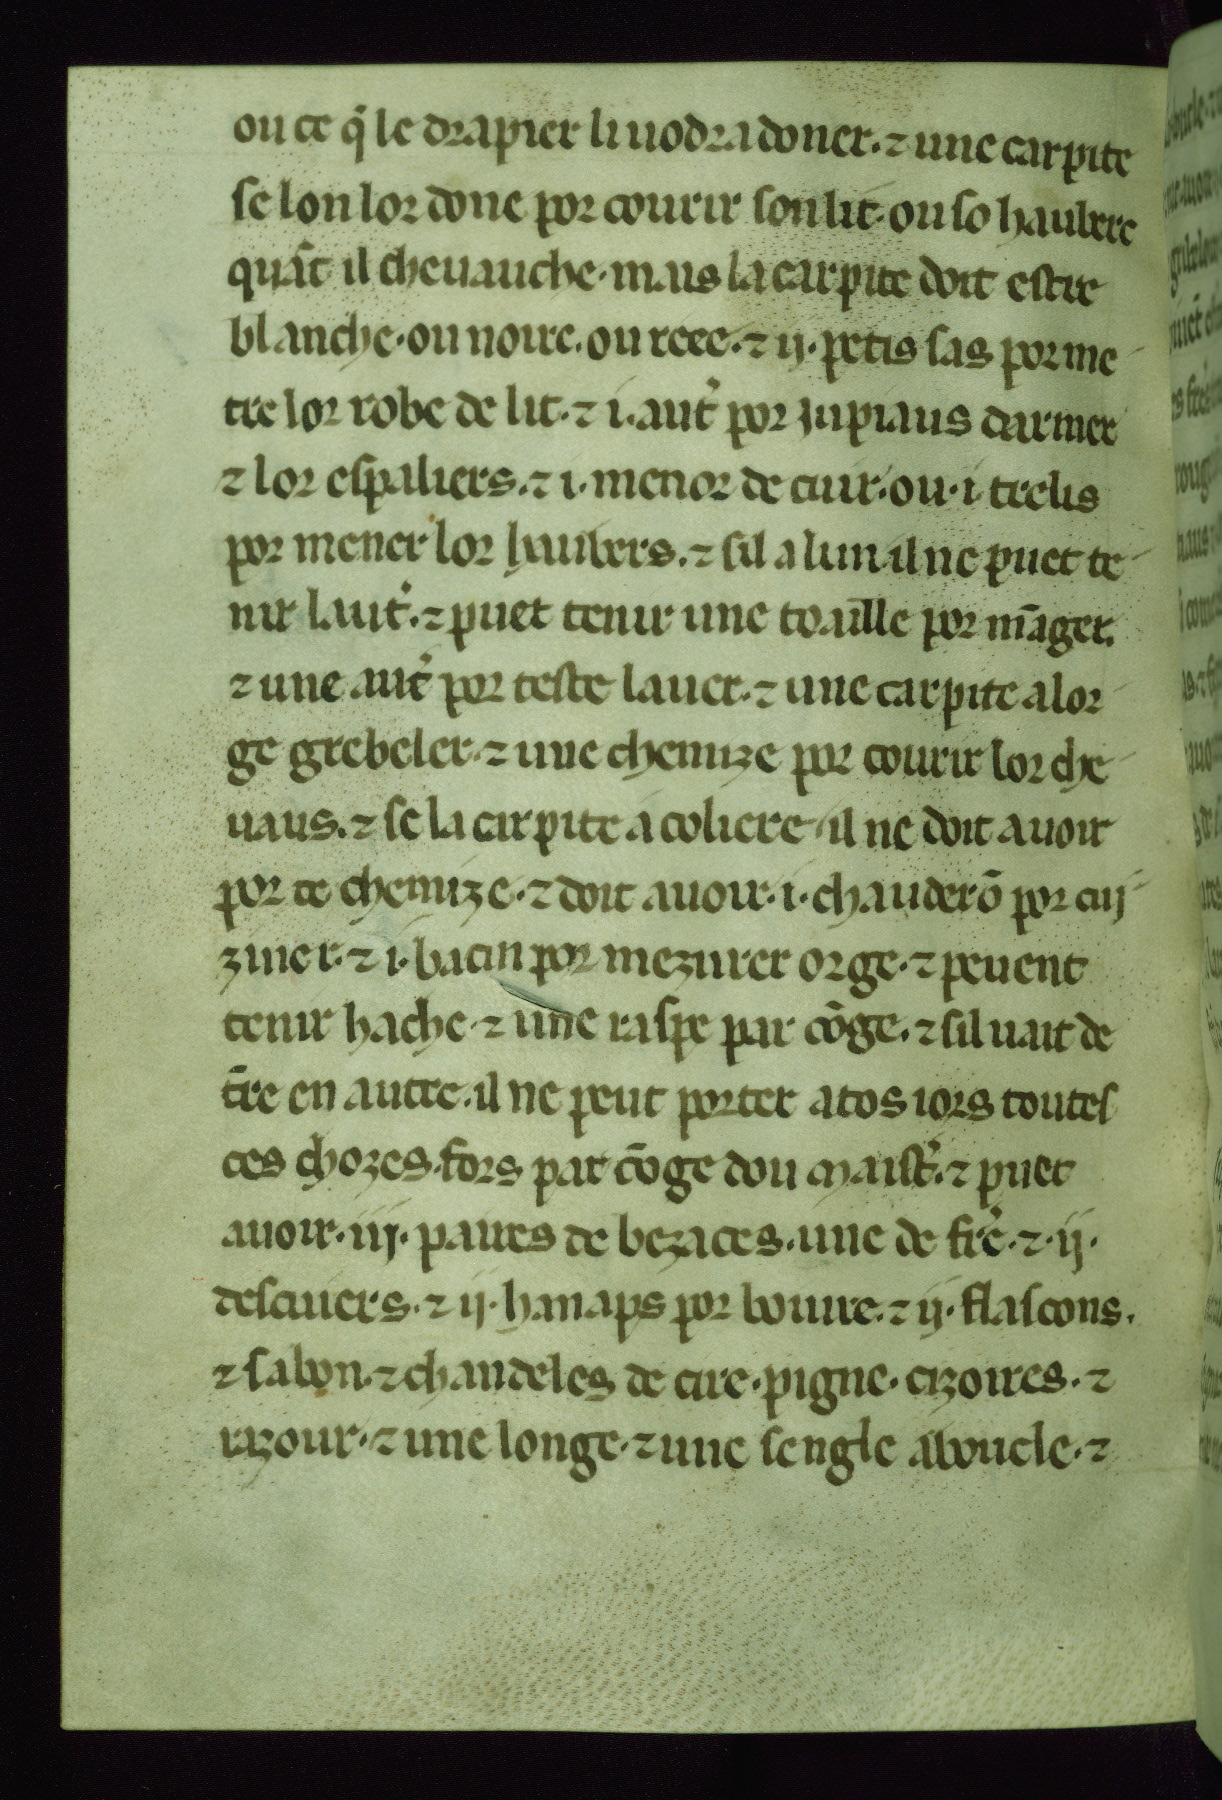 ou ce q̄ le drapier li uodra doner. ⁊ une carpite
se lon lor done por courir son lit. ou so hauberc
quāt il cheuauche. mais la carpite doit estre
blanche. ou noire. ou reee. ⁊ ij. petis sas por me
tre lor robe de lit. ⁊ i. aut̉ por jupiaus darmer
⁊ lor espaliers. ⁊ i. menor de cuir. ou .i. trelis
por mener lor haubers. ⁊ sil a lun il ne puet te
nir laut̉. ⁊ puet tenir une toaille por māger.
⁊ une aut̉ por teste lauer. ⁊ une carpite a lor
ge grebeler. ⁊ une chemize por courir lor che
uaus. ⁊ se la carpite a coliere il ne doit auoir
por ce chemize. ⁊ doit auoir .i. chauderō por cuj
ziner. ⁊ i. bacin por mezurer orge. ⁊ peuent
tenir hache. ⁊ une raspe par cōge. ⁊ sil uait de
t̄re en autre. il ne peut porter a tos iors toutes
ces chozes. fors par cōge dou maist̉. ⁊ puet
auoir .iij. paires de bezaces. une de fr̉e. ⁊ .ij.
descuiers. ⁊ ij. hanaps por boiure. ⁊ ij. flascons.
⁊ sabon. ⁊ chandeles de cire. pigne. cizoires. ⁊
razour. ⁊ une longe. ⁊ une sengle a boucle. ⁊